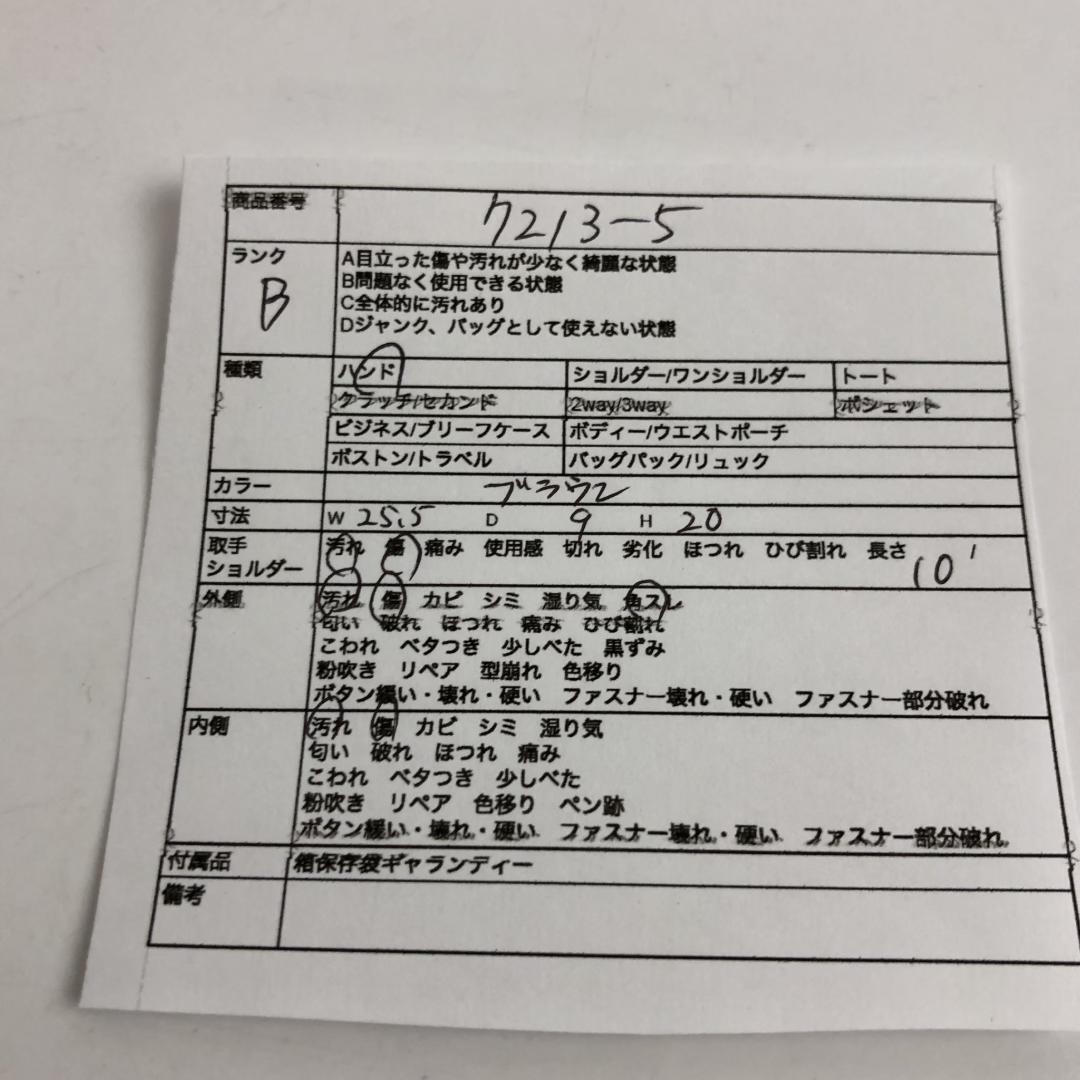 商品番号 7213-5
ランク B
A目立った傷や汚れが少なく綺麗な状態
B問題なく使用できる状態
C全体的に汚れあり
Dジャンク、バッグとして使えない状態
種類 ハンド ショルダー/ワンショルダー トート
クラッチ/セカンド 2way/3way ポシェット
ビジネス/ブリーフケース ボディー/ウエストポーチ
ボストン/トラベル バッグパック/リュック
カラー ブラウン
寸法 W 25.5 D 9 H 20
取手 汚れ 傷 痛み 使用感 切れ 劣化 ほつれ ひび割れ 長さ
ショルダー 10
外側 汚れ 傷 カビ シミ 湿り気 角スレ
匂い 破れ ほつれ 痛み ひび割れ
こわれ ベタつき 少しべた 黒ずみ
粉吹き リペア 型崩れ 色移り
ボタン緩い・壊れ・硬い ファスナー壊れ・硬い ファスナー部分破れ
内側 汚れ 傷 カビ シミ 湿り気
匂い 破れ ほつれ 痛み
こわれ ベタつき 少しべた
粉吹き リペア 色移り ペン跡
ボタン緩い・壊れ・硬い ファスナー壊れ・硬い ファスナー部分破れ
付属品 箱保存袋ギャランティー
備考